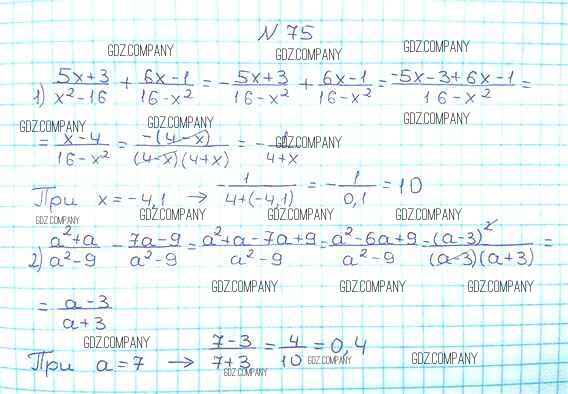 N 75
GDZ.COMPANY GDZ.COMPANY GDZ.COMPANY
1) (5x+3)/(x²-16) + (6x-1)/(16-x²) = -(5x+3)/(16-x²) + (6x-1)/(16-x²) = (-5x-3+6x-1)/(16-x²) =
GDZ.COMPANY GDZ.COMPANY GDZ.COMPANY
= (x-4)/(16-x²) = -(4-x)/((4-x)(4+x)) = -1/(4+x)
При x=-4,1 → -1/(4+(-4,1)) = -1/0,1 = 10
GDZ.COMPANY GDZ.COMPANY GDZ.COMPANY GDZ.COMPANY
2) (a²+a)/(a²-9) - (7a-9)/(a²-9) = (a²+a-7a+9)/(a²-9) = (a²-6a+9)/(a²-9) = (a-3)²/((a-3)(a+3)) =
GDZ.COMPANY GDZ.COMPANY GDZ.COMPANY
= (a-3)/(a+3)
GDZ.COMPANY
При a=7 → (7-3)/(7+3) = 4/10 = 0,4
GDZ.COMPANY GDZ.COMPANY
GDZ.COMPANY